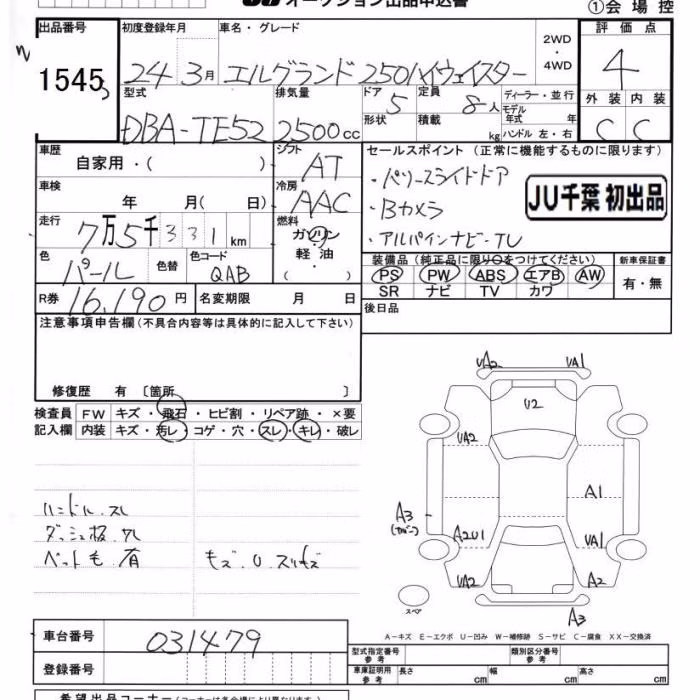 オークション出品申込書
①会場控
出品番号 初度登録年月 車名・グレード 評価点
1545 24 3月 エルグランド 250ハイウェイスター 2WD・4WD 4
型式 排気量 ドア 5 定員 8人 ディーラー・並行 外装 内装
DBA-TE52 2500cc 形状 積載 kg モデル年式 年 ハンドル 左・右 C C
車歴 自家用・( ) シフト AT セールスポイント (正常に機能するものに限ります)
車検 年 月( 日) 冷房 AAC ・パワースライドドア
・Bカメラ JU千葉 初出品
走行 7万5千331km 燃料 ガソリン・軽油・( ) ・アルパインナビ・TV
色 パール 色替 色コード QAB 装備品 (純正品に限り○をつけてください) 新車保証書
PS PW ABS エアB AW 有・無
SR ナビ TV カワ
R券 16,190円 名変期限 月 日 後日品
注意事項申告欄(不具合内容等は具体的に記入して下さい)
修復歴 有 〔箇所 〕
検査員 FW キズ・飛石・ヒビ割・リペア跡・×要
記入欄 内装 キズ・汚レ・コゲ・穴・スレ・キレ・破レ
UA2 UA1
U2
UA2
A1
A3
A2U1 UA1
UA2 A2
スペア
A3
ハンドル.スレ
ダッシュ板.
ペット毛.有
車台番号 031479
登録番号
A-キズ E-エクボ U-凹み W-補修跡 S-サビ C-腐食 XX-交換済
型式指定番号 参考 類別区分番号 参考
車庫証明用 参考 長さ cm 幅 cm 高さ cm
希望出品コーナー